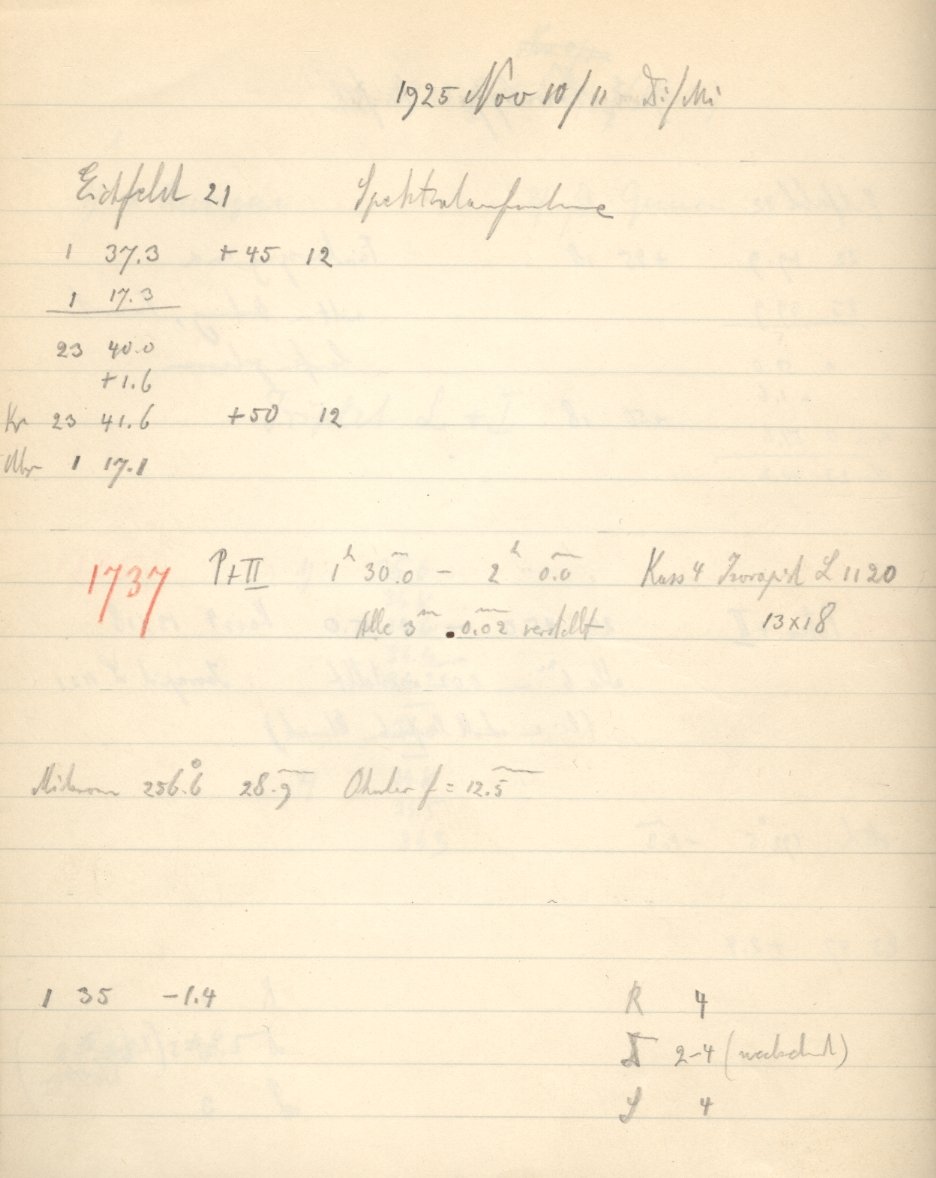 1925 Nov 10/11 Di/Mi
Eichfeld 21 Spektralaufnahme
1 37.3 +45 12
1 17.3
23 40.0
+1.6
Kr 23 41.6 +50 12
Mbr 1 17.1
1737 P+II 1h 30.0m – 2h 0.0m Kass 4 Isorapid L 1120
Alle 3m 0.02mm verstellt 13x18
Mikrom 256.6° 28.9mm Okular f = 12.5mm
1 35 -1.4 R 4
D 2-4 (wechselnd)
S 4